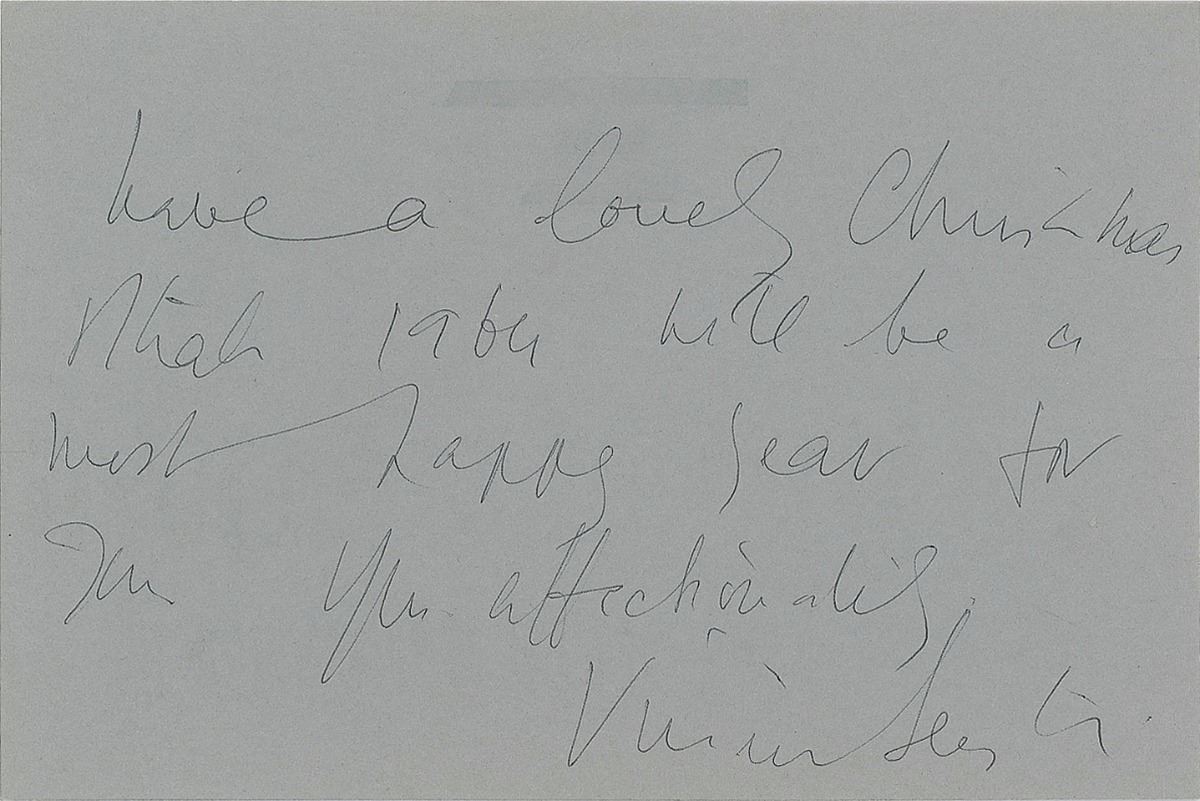 have a lovely Christmas
& that 1964 will be a
most happy year for
you Yrs. affectionately.
Vivien Leigh.